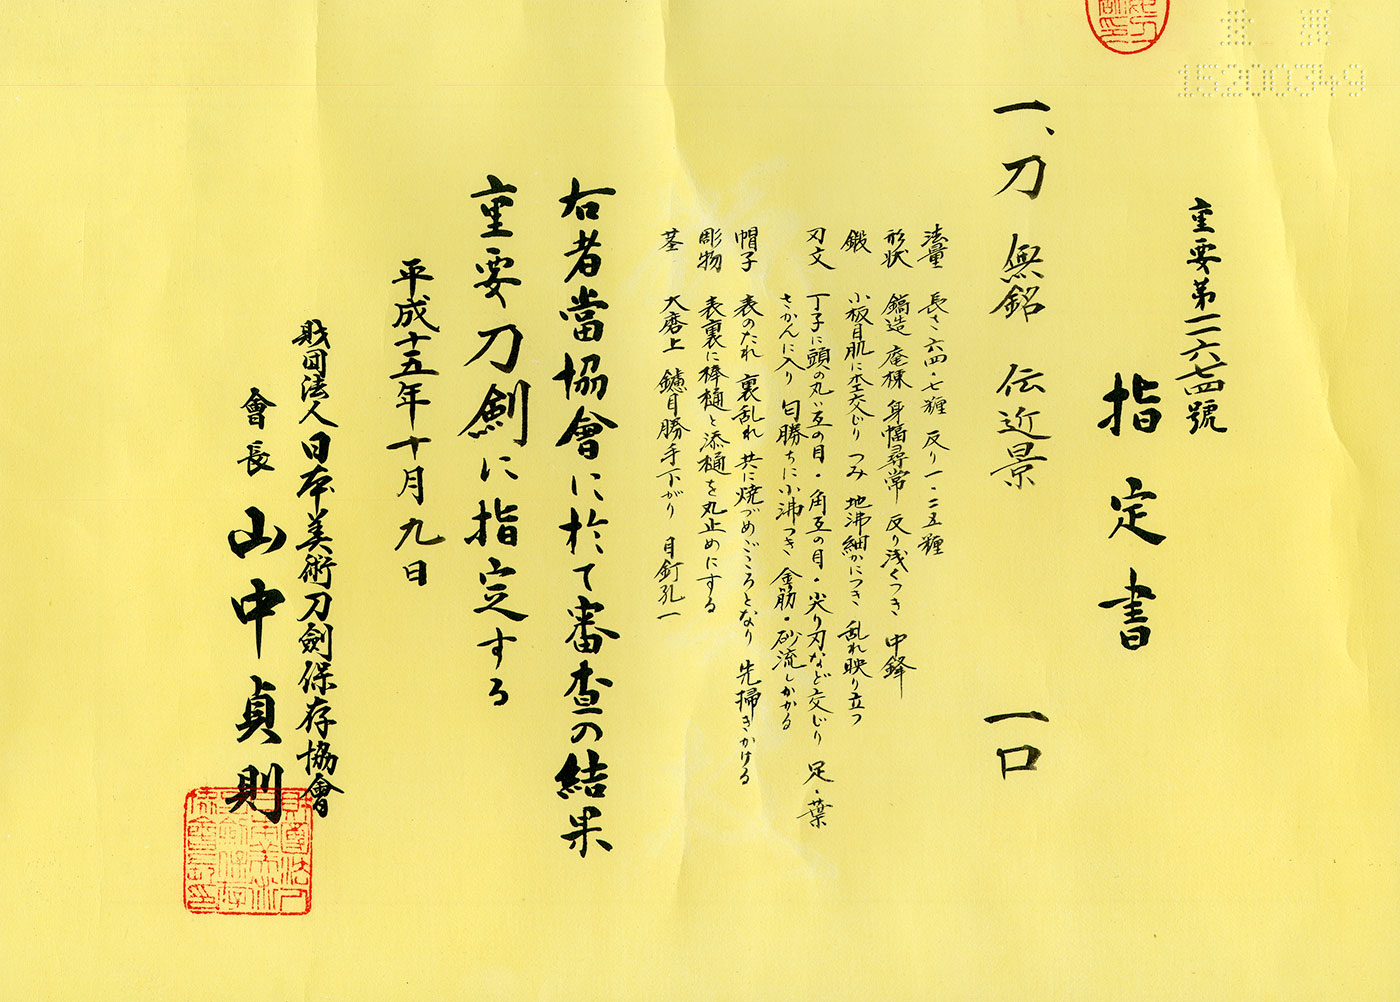 15200349
重要第一一六七四號
指定書
一、刀 無銘 伝近景 一口
法量 長さ 六四・七糎 反り 一・二五糎
形状 鎬造 庵棟 身幅尋常 反り浅くつき 中鋒
鍛 小板目肌に杢交じり つみ 地沸細かにつき 乱れ映り立つ
刃文 丁子に頭の丸い互の目・角互の目・尖り刃など交じり 足・葉
さかんに入り 匂勝ちに小沸つき 金筋・砂流しかかる
帽子 表のたれ 裏乱れ 共に焼づめごころとなり 先掃きかける
彫物 表裏に棒樋と添樋を丸止めにする
茎 大磨上 鑢目勝手下がり 目釘孔一
右者當協會に於て審査の結果
重要刀剣に指定する
平成十五年十月九日
財団法人日本美術刀劍保存協會
會長 山中貞則